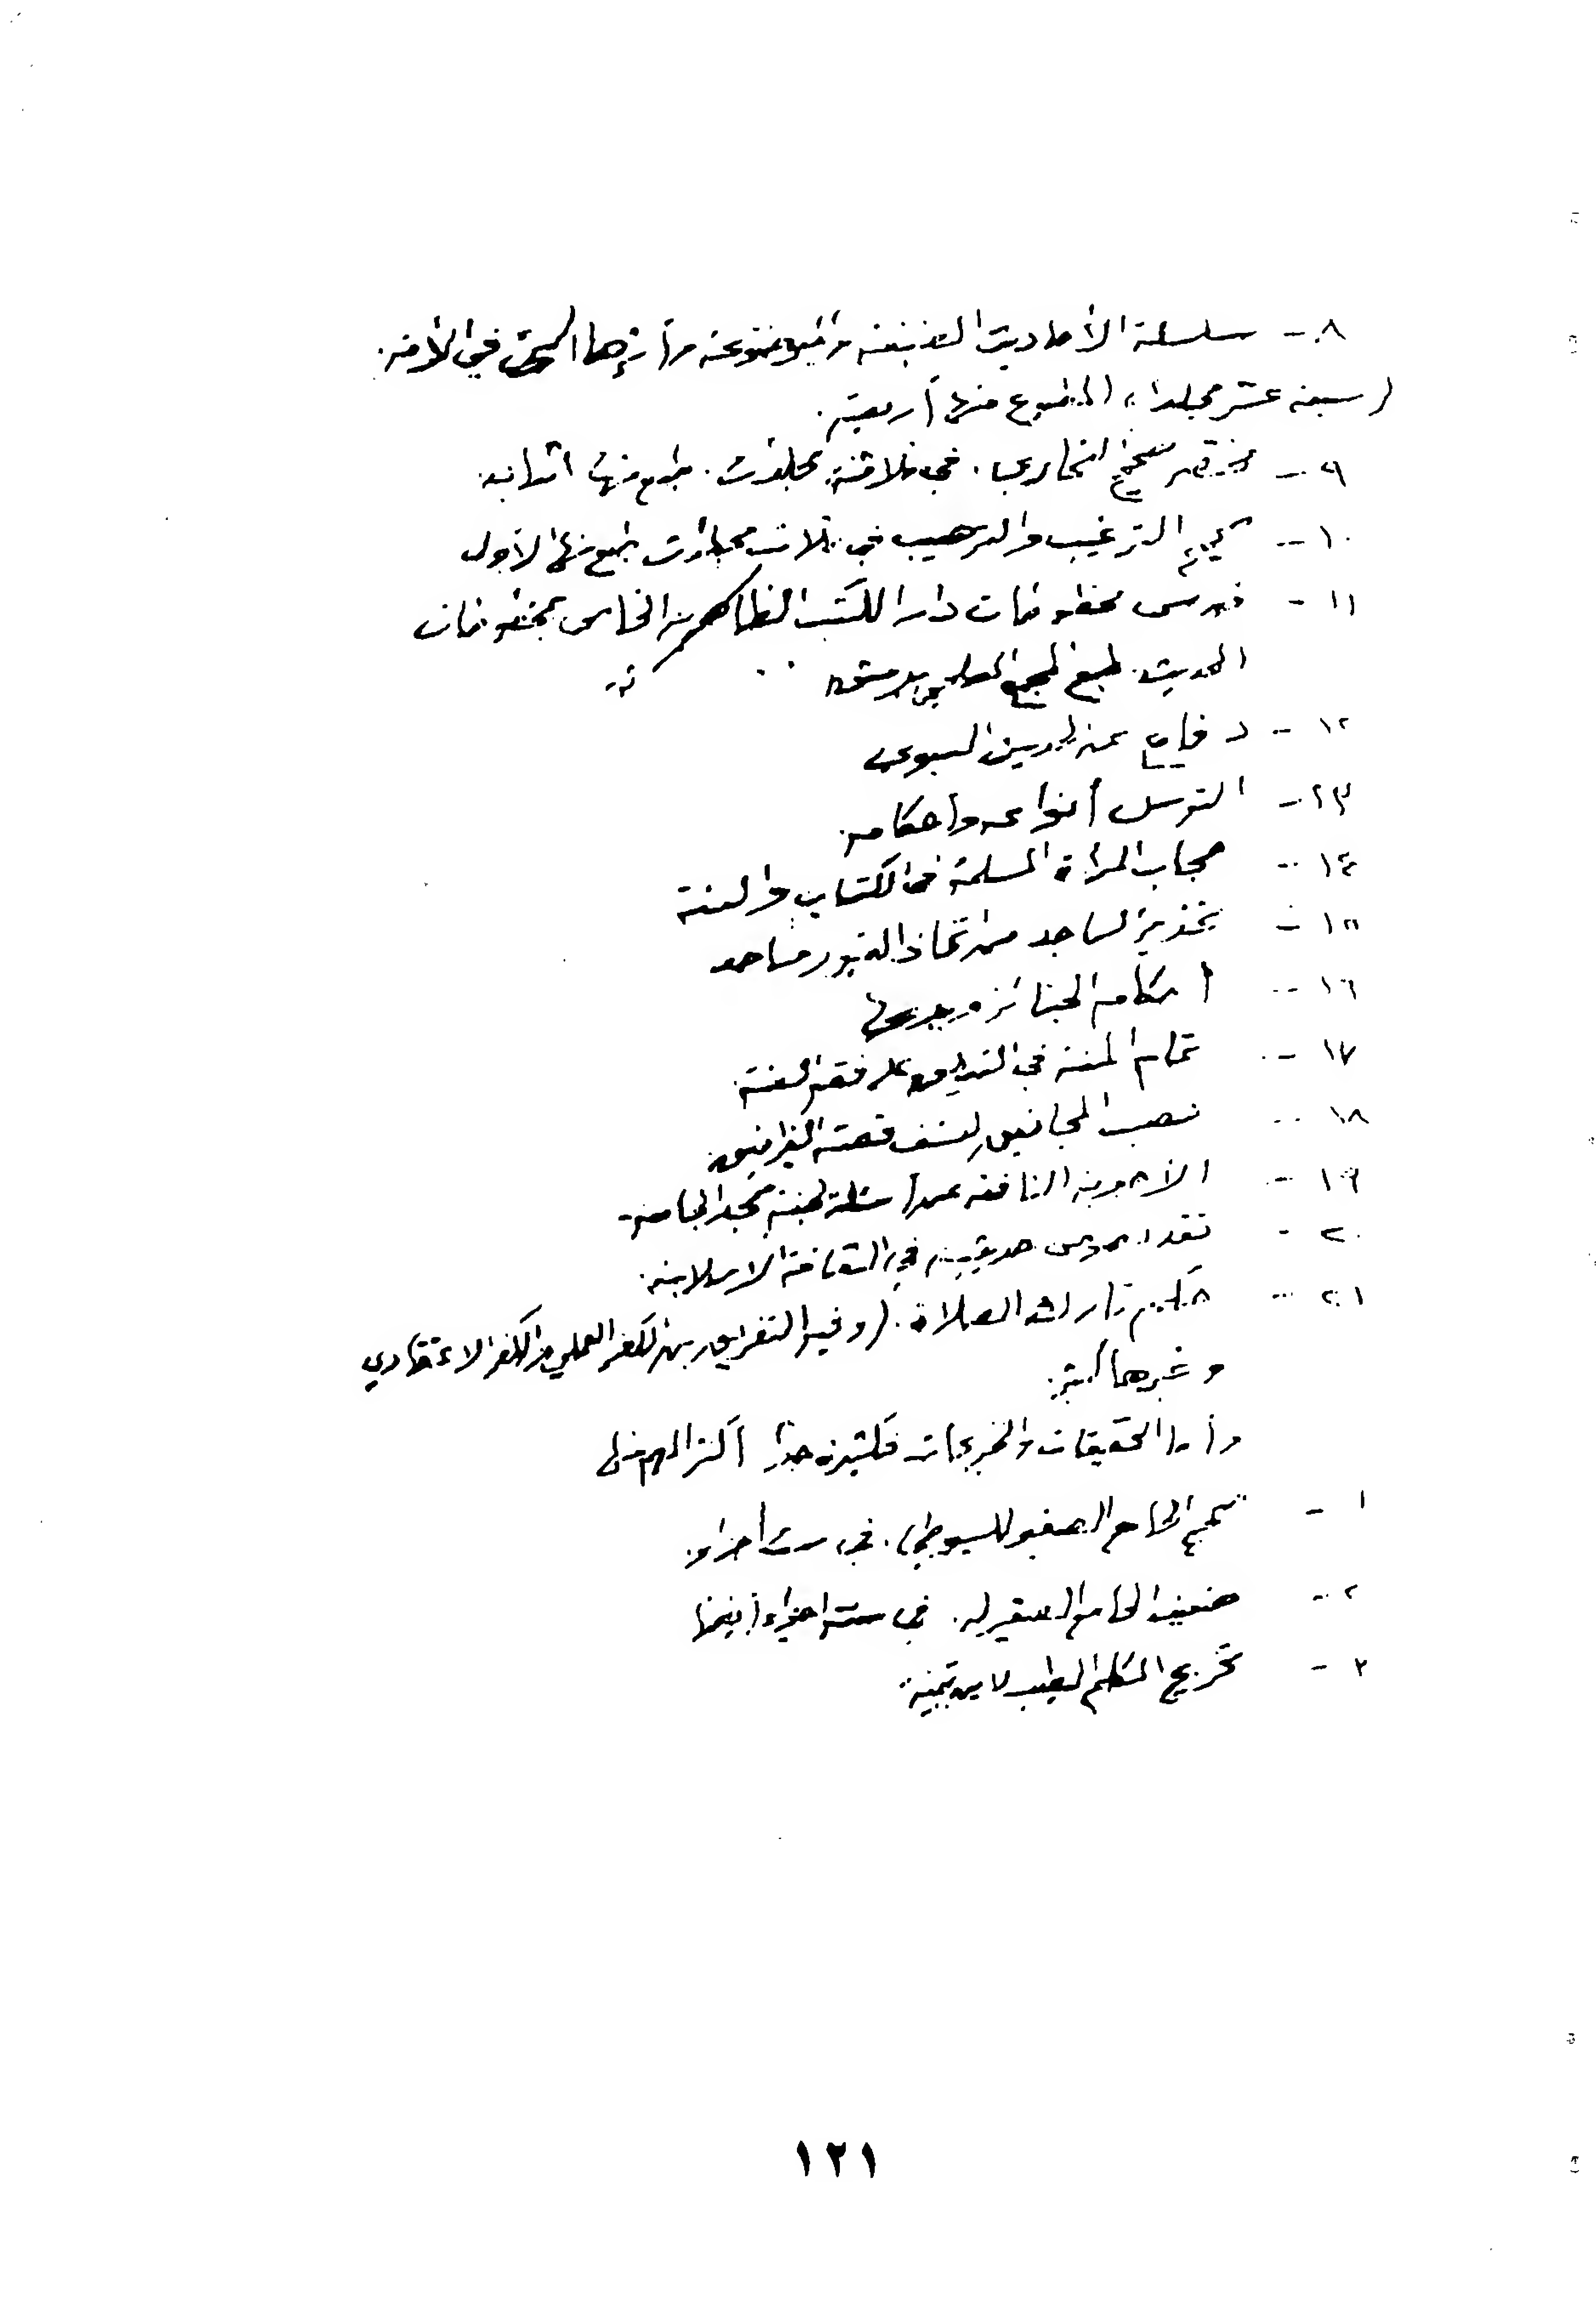 ٨ - سلسلة الأحاديث الضعيفة والموضوعة وأثرها السيئ في الأمة.
(سبعة عشر مجلدا، المطبوع منها أربعة.
٩ - مختصر صحيح البخاري. في ثلاثة مجلدات. طبع منها اثنان.
١٠ - صحيح الترغيب والترهيب في ثلاث مجلدات طبع منها الأول
١١ - فهرس مخطوطات دار الكتب الظاهرية الخاص بمخطوطات
الحديث. طبع المجمع العلمي بدمشق
١٢ - دفاع عن الحديث النبوي
١٣ - التوسل أنواعه وأحكامه
١٤ - حجاب المرأة المسلمة في الكتاب والسنة
١٥ - تحذير الساجد من اتخاذ القبور مساجد
١٦ - أحكام الجنائز وبدعها
١٧ - تمام المنة في التعليق على فقه السنة.
١٨ - نصب المجانيق لنسف قصة الغرانيق.
١٩ - الأجوبة النافعة عن أسئلة لجنة مسجد الجامعة
٢٠ - نقد نصوص حديثية في الثقافة الإسلامية.
٢١ - حكم تارك الصلاة. (وفيه التفريق بين الكفر العملي والكفر الاعتقادي
وغيرها كثير.
وأما التحقيقات والتخريجات فكثيرة جدا أذكر المهم منها
١ - صحيح الجامع الصغير للسيوطي. في ست أجزاء.
٢ - ضعيف الجامع الصغير له. في ستة أجزاء أيضا
٣ - تخريج الكلم الطيب لابن تيمية.
١٢١